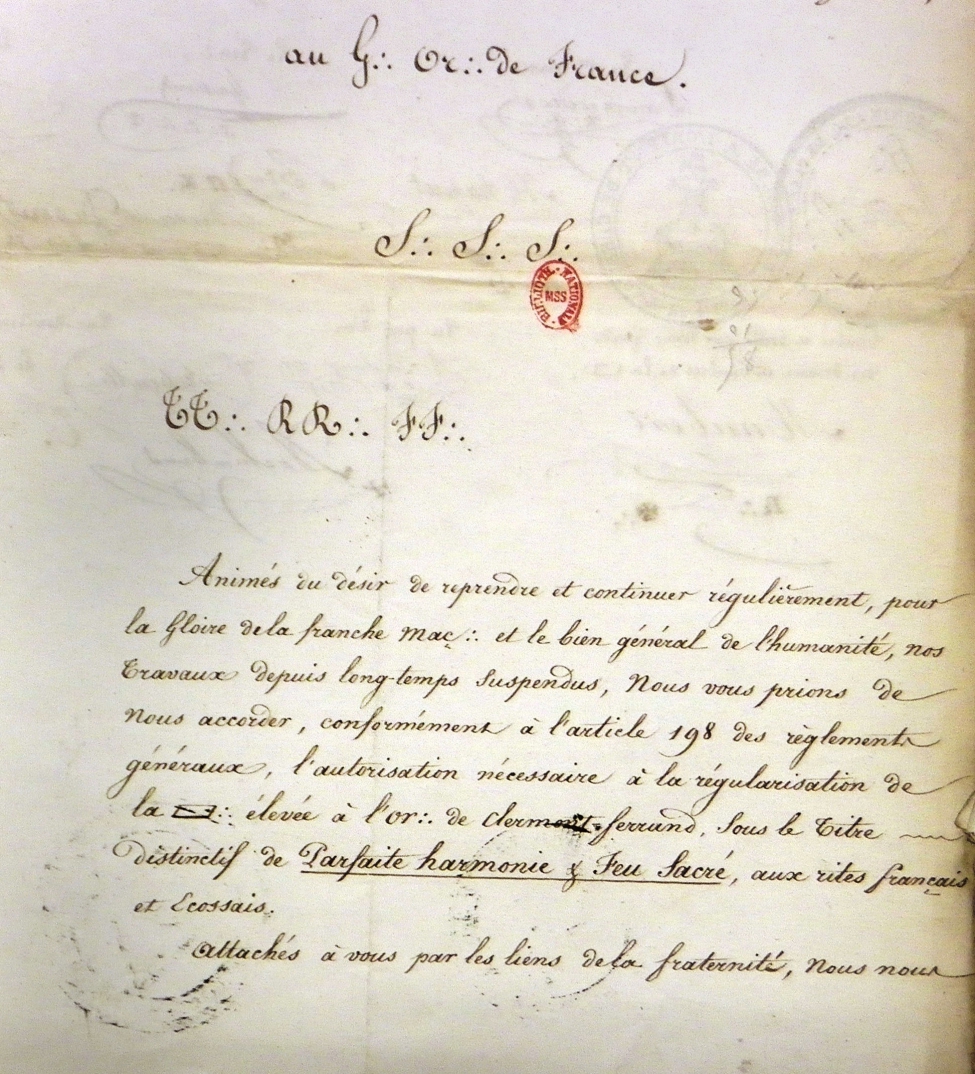 au G∴ Or∴ de France.
S∴ S∴ S∴
BIBLIOTH. NATIONALE
MSS
TT∴ RR∴ FF∴
Animés du désir de reprendre et continuer régulièrement, pour
la Gloire de la franche maç∴ et le bien général de l'humanité, nos
Travaux depuis long-temps suspendus, Nous vous prions de
Nous accorder, conformément à l'article 198 des règlements
généraux, l'autorisation nécessaire à la régularisation de
la ▭∴ élevée à l'or∴ de clermont-ferrand, Sous le Titre
distinctif de Parfaite harmonie & Feu Sacré, aux rites français
et Ecossais.
attachés à vous par les liens de la fraternité, Nous nous